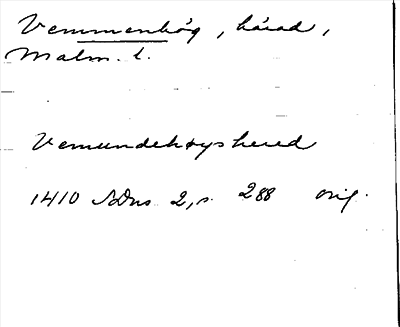 Vemmenhög, härad,
Malm. l.
Vemundehøyshered
1410 SDns 2, s. 288 orig.